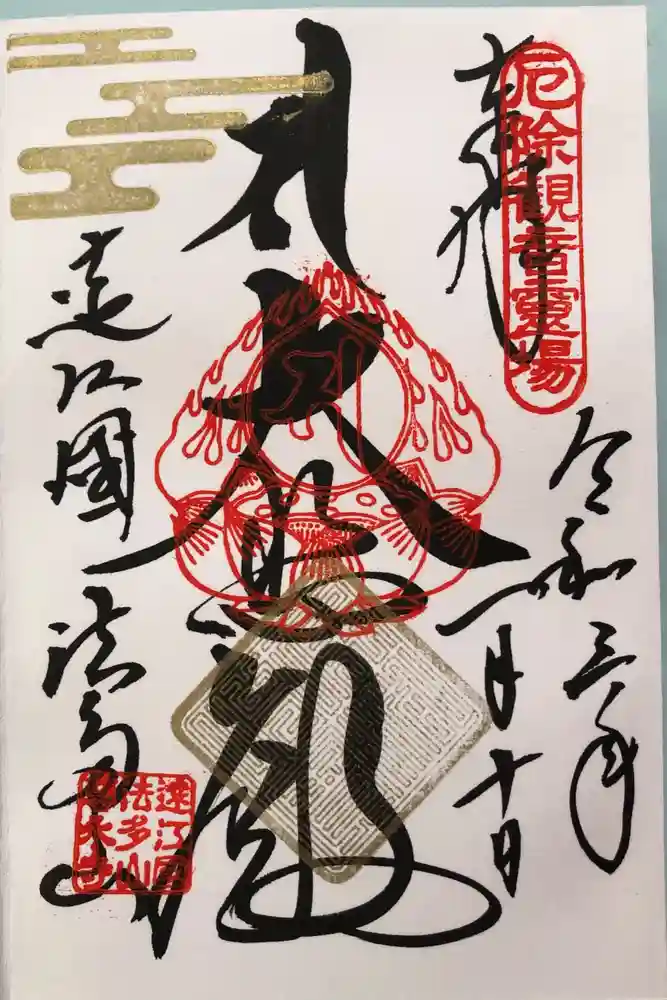 奉拝
厄除観音靈場
令和三年
月十日
大悲
遠江國 法多山
遠江国
法多山
尊永寺